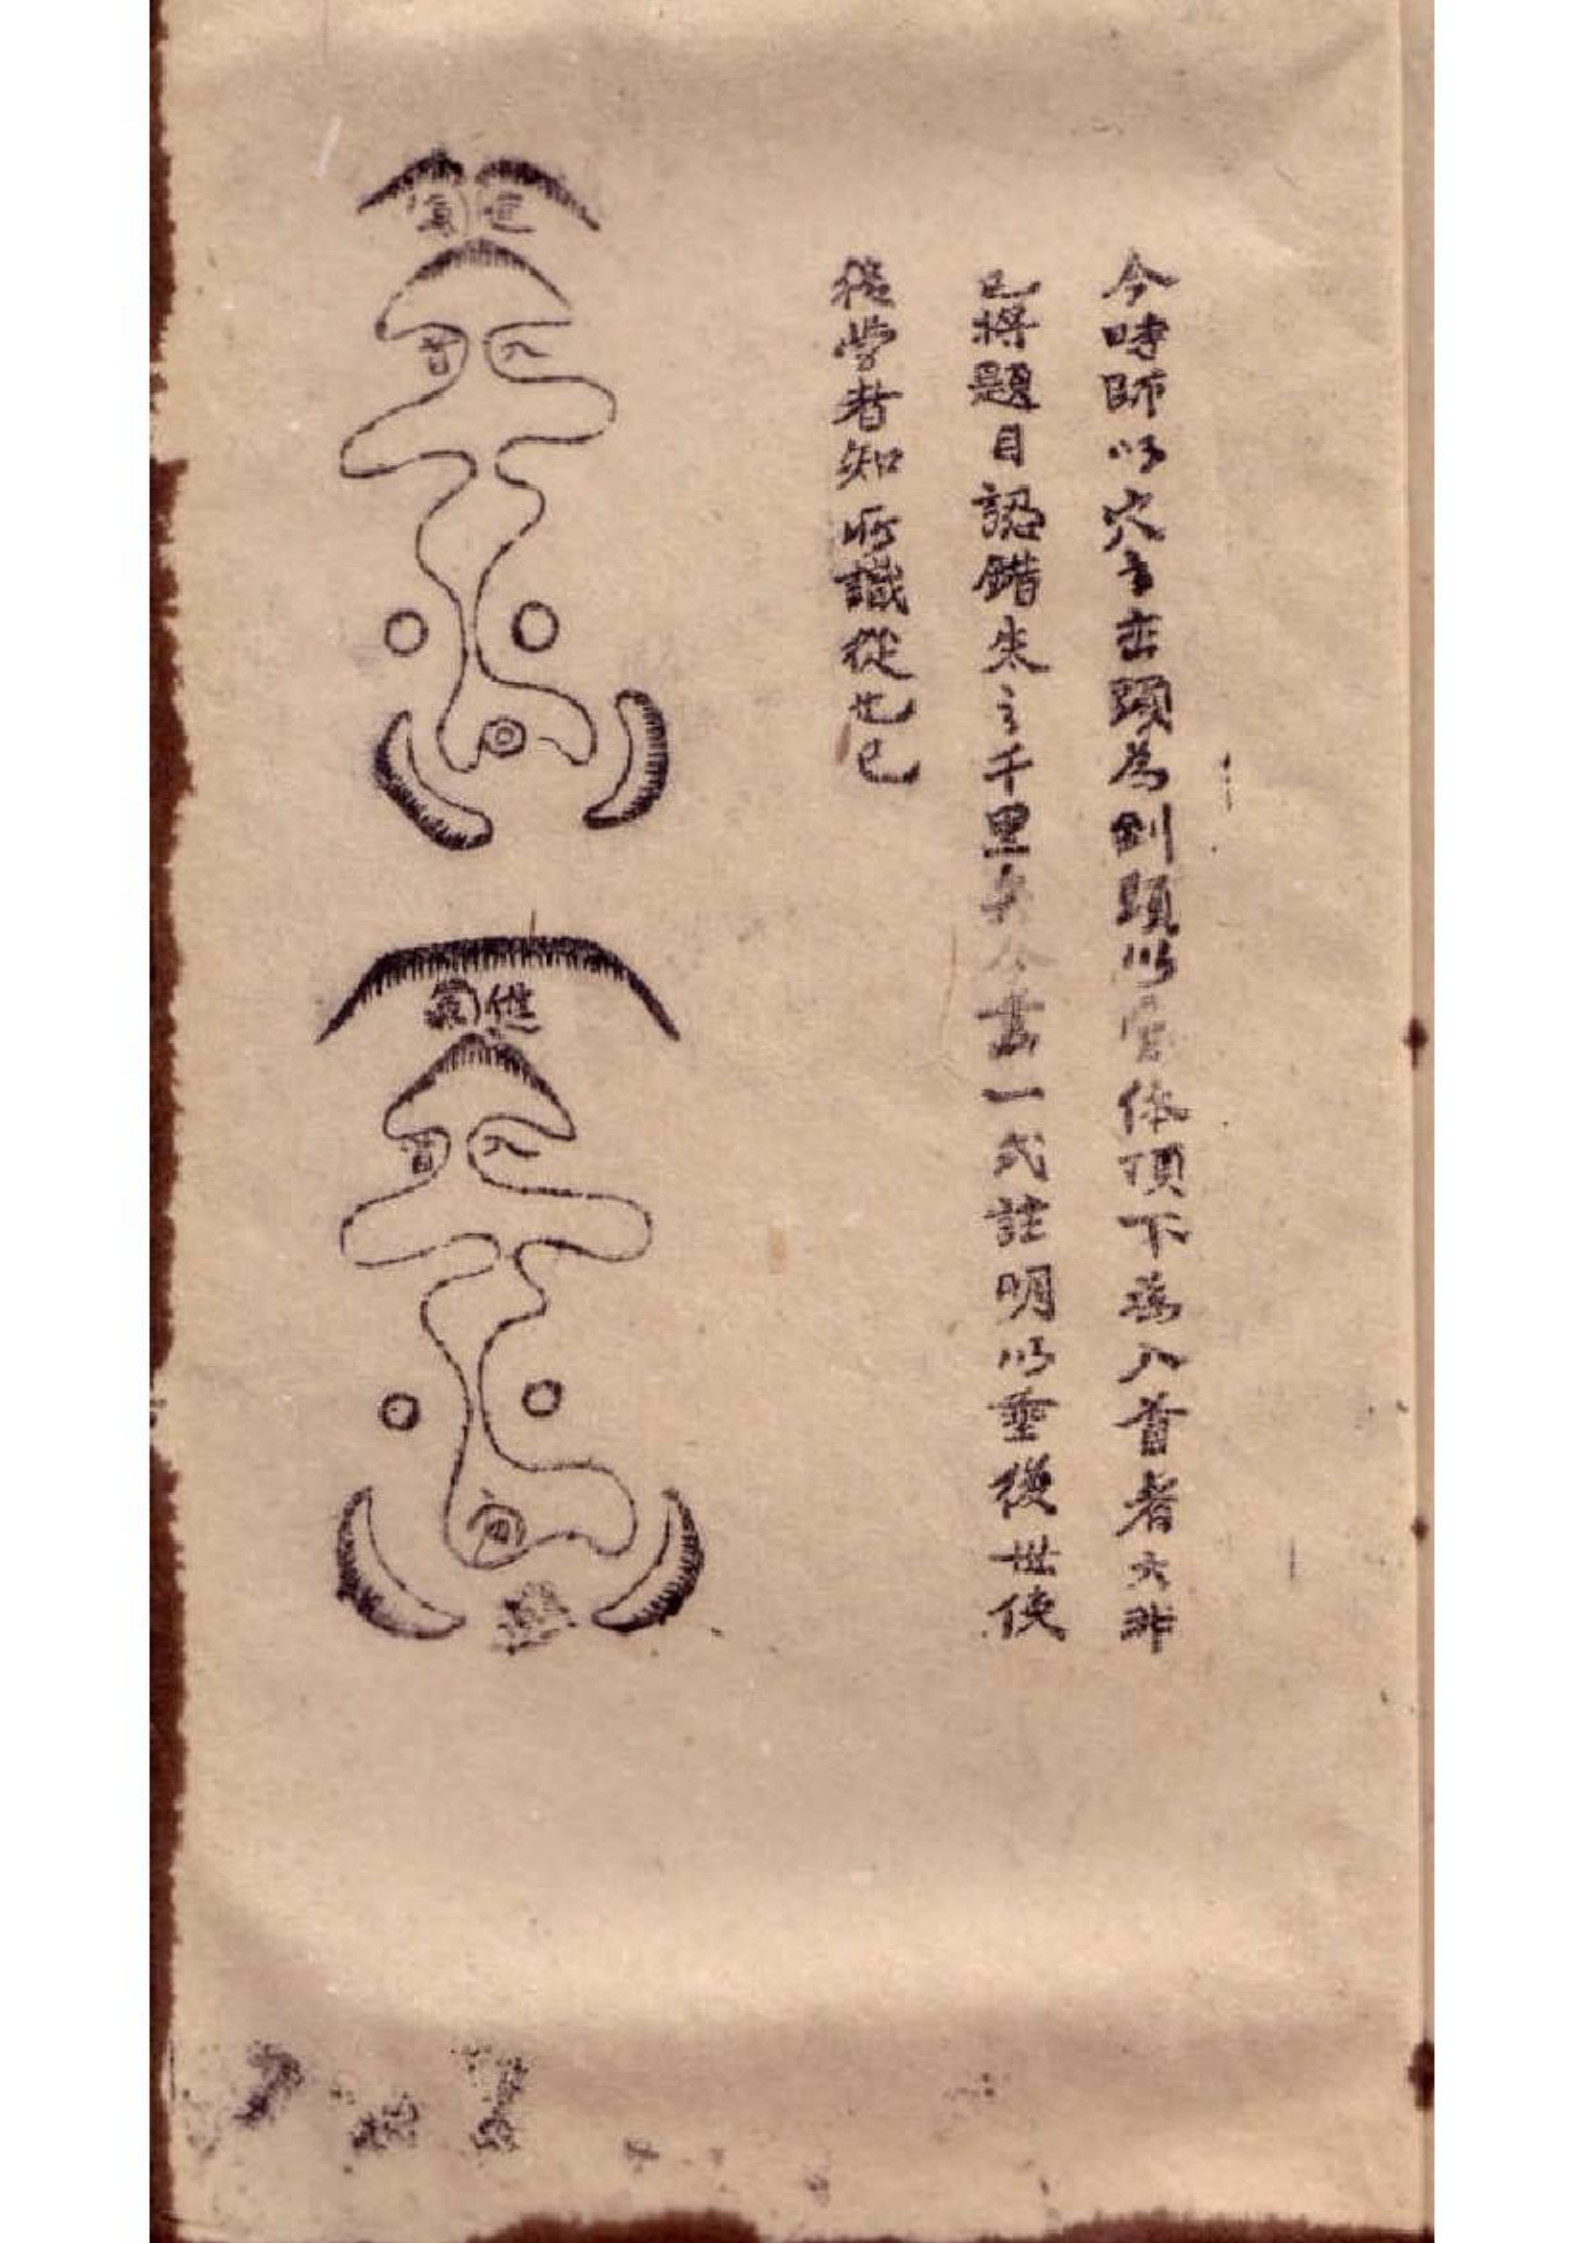 今時師以穴之巒頭為到頭以穴体頂下為入首者大非
已將題目認錯失之千里矣今書一式註明以垂後世使
後學者知所識從也已
進氣
入首
穴
進氣
入首
穴